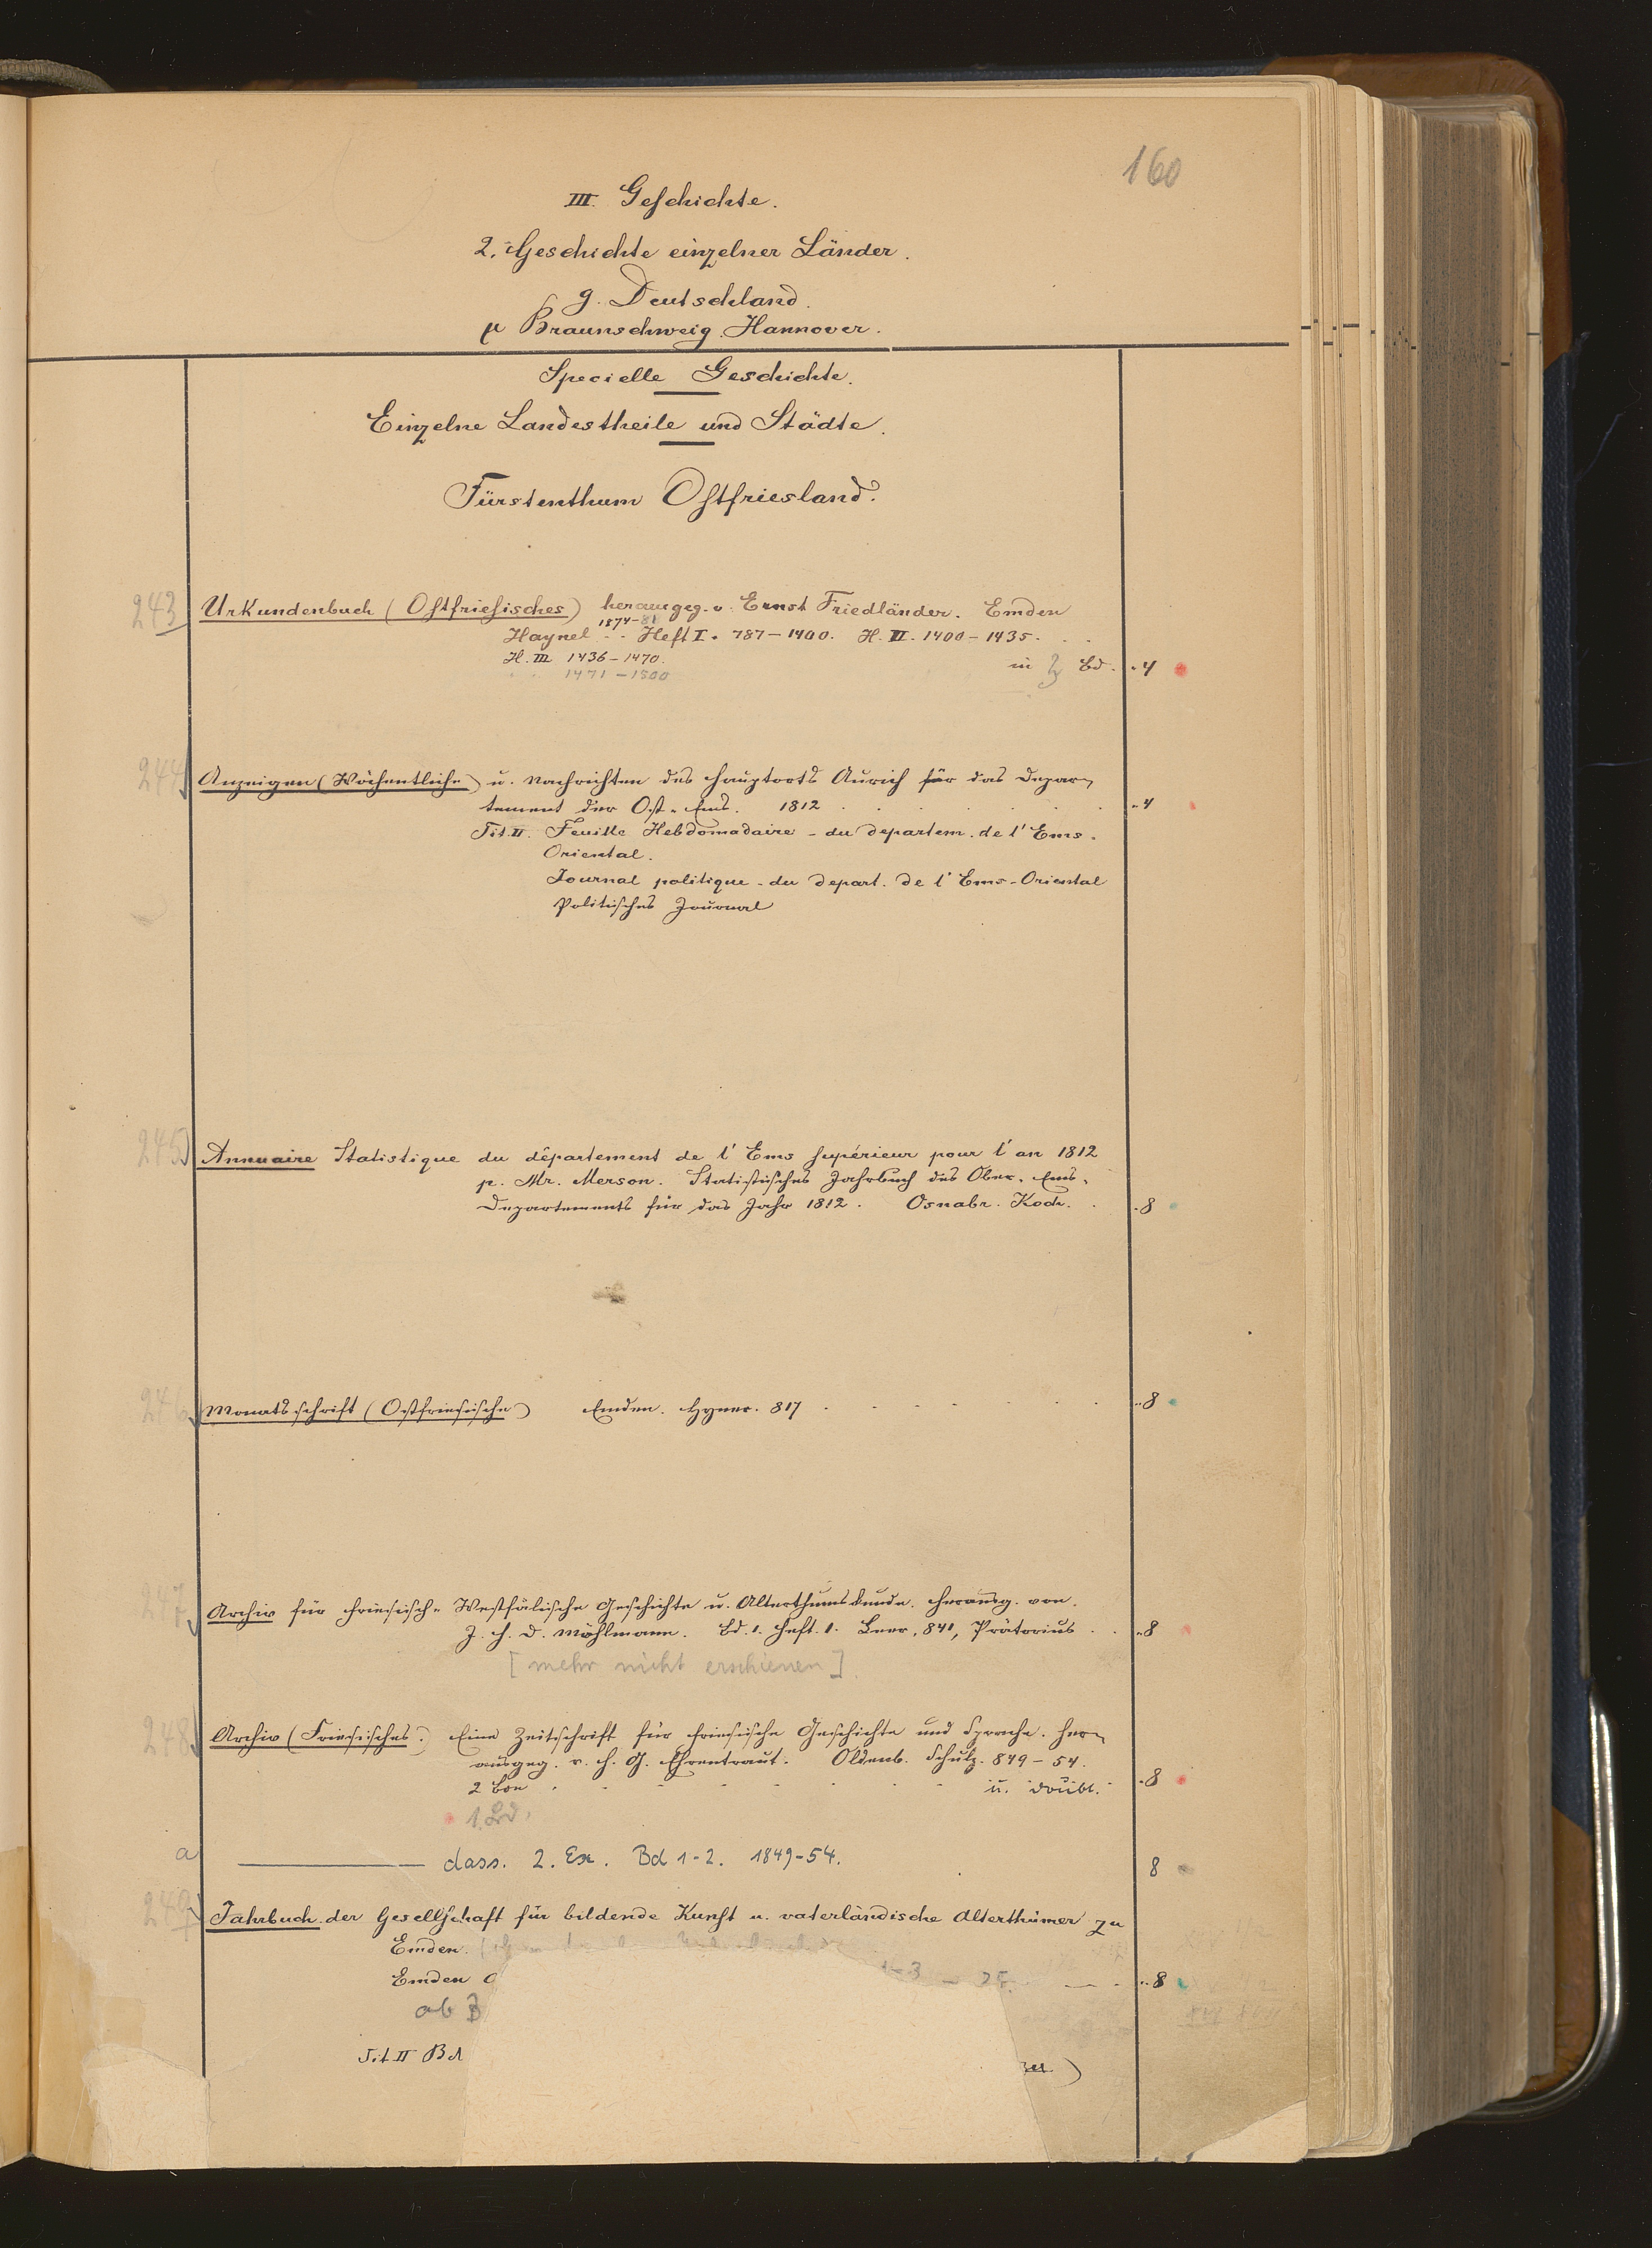 160
III. Geschichte.
2. Geschichte einzelner Länder.
g. Deutschland.
μ Braunschweig. Hannover.
Specielle Geschichte.
Einzelne Landestheile und Städte.
Fürstenthum Ostfriesland.
243 Urkundenbuch (Ostfriesisches) herausgeg. v. Ernst Friedländer. Emden
1874-81
Haynel . . Heft I. 787-1400. H. II. 1400-1435. . .
H. III 1436-1470. in 2 Bd. . 4
1471-1500
244 Anzeigen (Wöchentliche) u. Nachrichten des Hauptorts Aurich für das Depar-
tement der Ost-Ems. 1812 . . . . . . . 4
Tit. II. Feuille Hebdomadaire - du departem. de l'Ems-
Oriental.
Journal politique - du depart. de l'Ems-Oriental
Politisches Journal
245 Annuaire Statistique du département de l'Ems supérieur pour l'an 1812
p. Mr. Merson. Statistisches Jahrbuch des Ober-Ems-
Departements für das Jahr 1812. Osnabr. Koch. . . 8
246 Monatsschrift (Ostfriesische) Emden. Hyner. 817 . . . . . . . 8
247 Archiv für friesisch-Westfälische Geschichte u. Alterthumskunde. Herausg. von
J. H. D. Möhlmann. Bd. 1. Heft. 1. Leer, 841, Prätorius . . 8
[mehr nicht erschienen].
248 Archiv (Friesisches.) Eine Zeitschrift für friesische Geschichte und Sprache. Her-
ausgeg. v. H. G. Ehrentraut. Oldenb. Schulz. 849-54.
2 Bde . . . . . . . u. doubl. . 8
1. Bd.
a dass. 2. Ex. Bd 1-2. 1849-54. 8
249 Jahrbuch der Gesellschaft für bildende Kunst u. vaterländische Alterthümer zu
Emden.
Emden 1-3 - 25. . . 8
ab B
Tit II Bd )